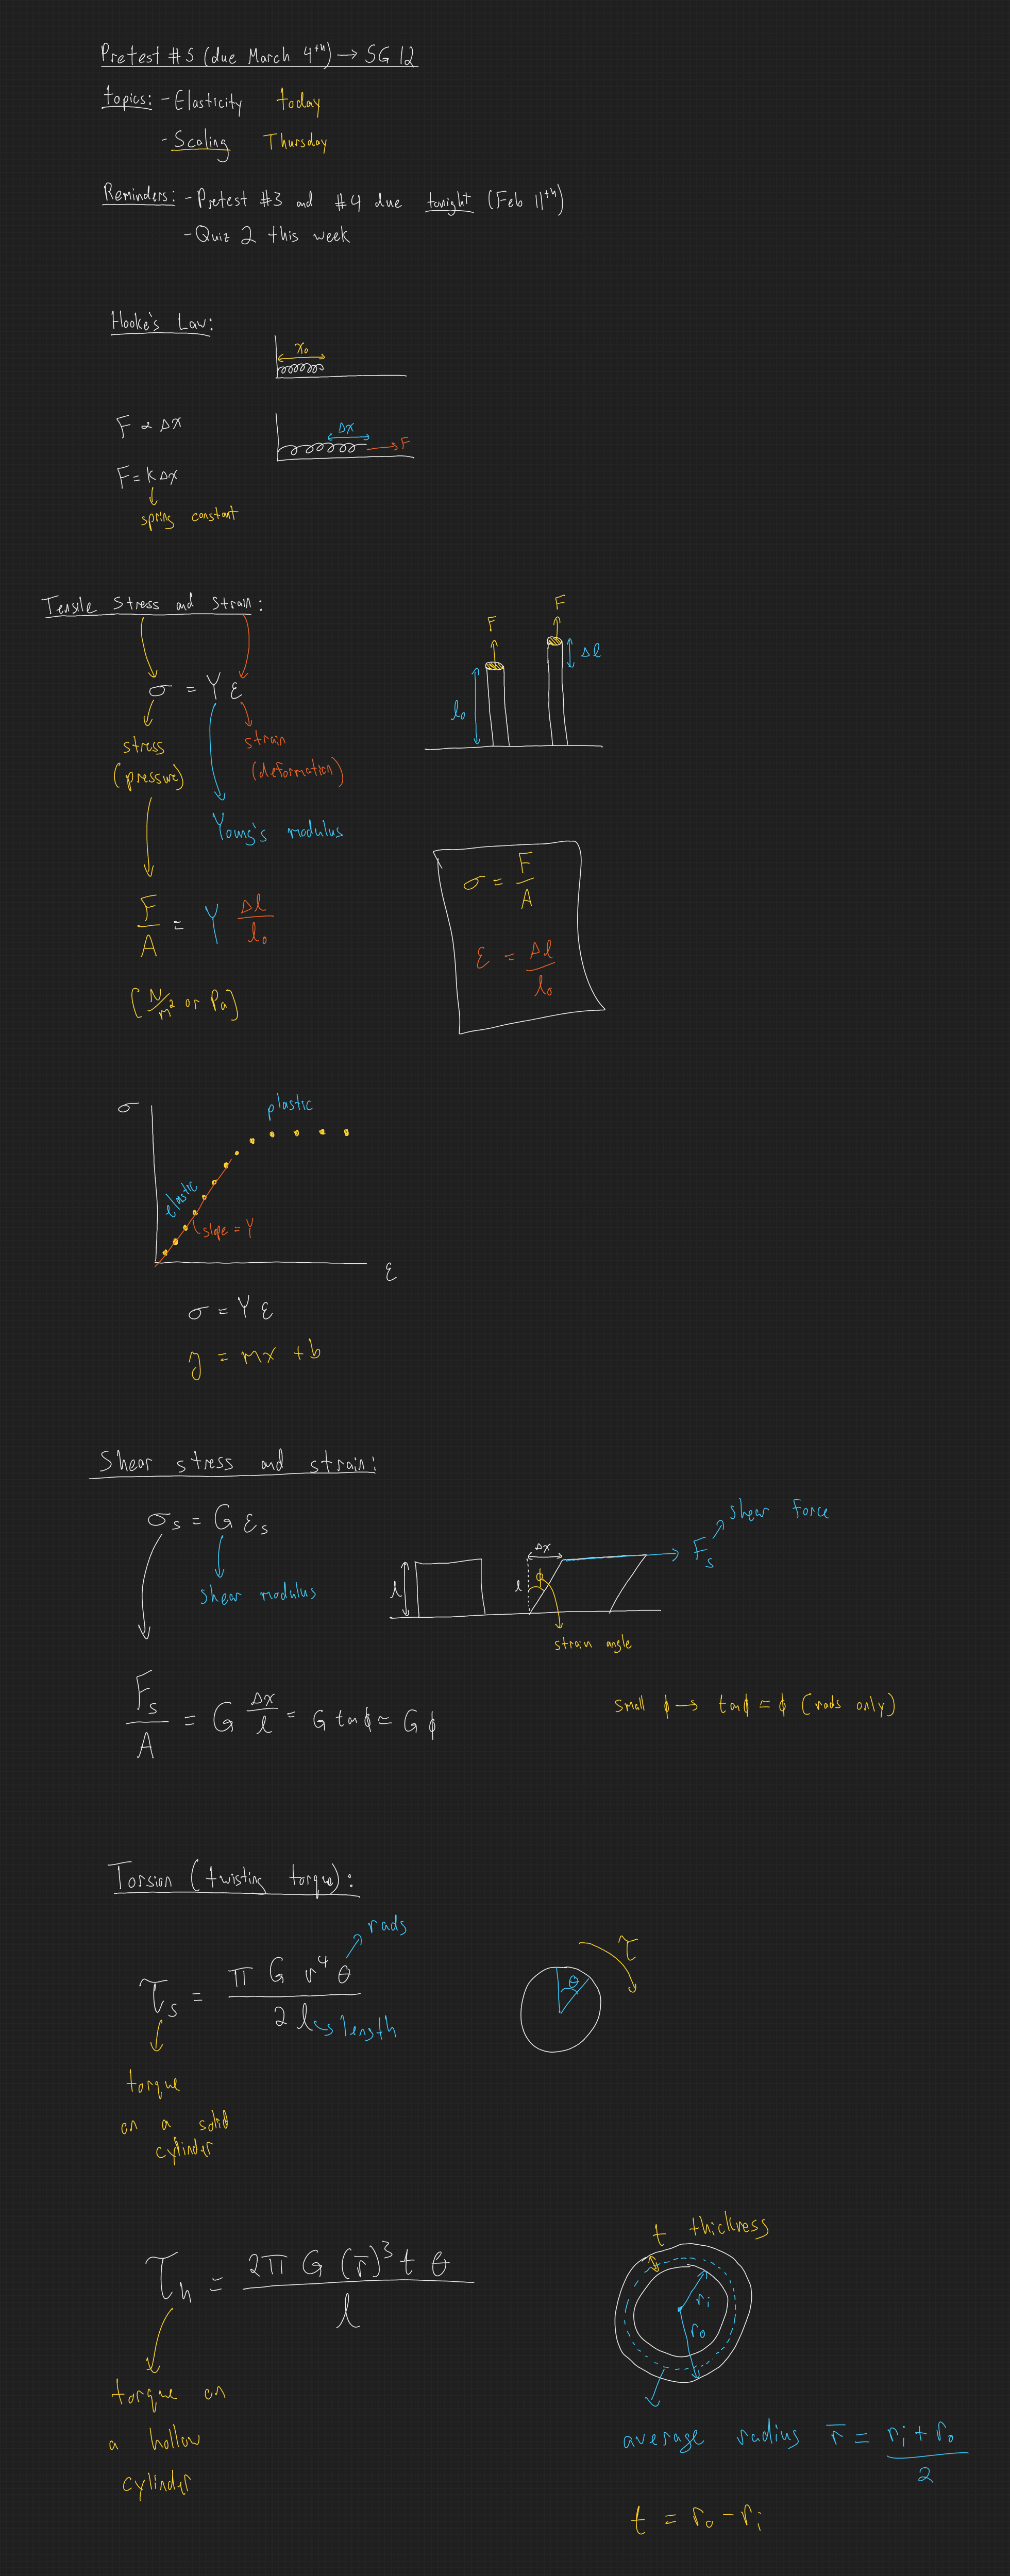 Pretest #5 (due March 4th) → SG 12
Topics: - Elasticity today
- Scaling Thursday
Reminders: - Pretest #3 and #4 due tonight (Feb 11th)
- Quiz 2 this week
Hooke's Law:
x₀
F ∝ Δx
Δx
F
F = kΔx
spring constant
Tensile stress and strain:
F
F
Δl
l₀
σ = Y ε
stress
(pressure)
strain
(deformation)
Young's modulus
σ = F/A
ε = Δl/l₀
F/A = Y Δl/l₀
(N/m² or Pa)
σ
plastic
elastic
slope = Y
ε
σ = Y ε
y = mx + b
Shear stress and strain:
σₛ = G εₛ
shear modulus
shear force
Fₛ
Δx
l
l
ϕ
strain angle
Fₛ/A = G Δx/l = G tanϕ ≃ G ϕ
small ϕ → tanϕ ≃ ϕ (rads only)
Torsion (twisting torque):
rads
τₛ = π G r⁴ θ / 2 l
length
τ
θ
torque
on a solid
cylinder
t thickness
rᵢ
r₀
τₕ = 2π G (r̅)³ t θ / l
torque on
a hollow
cylinder
average radius r̅ = rᵢ + r₀ / 2
t = r₀ - rᵢ